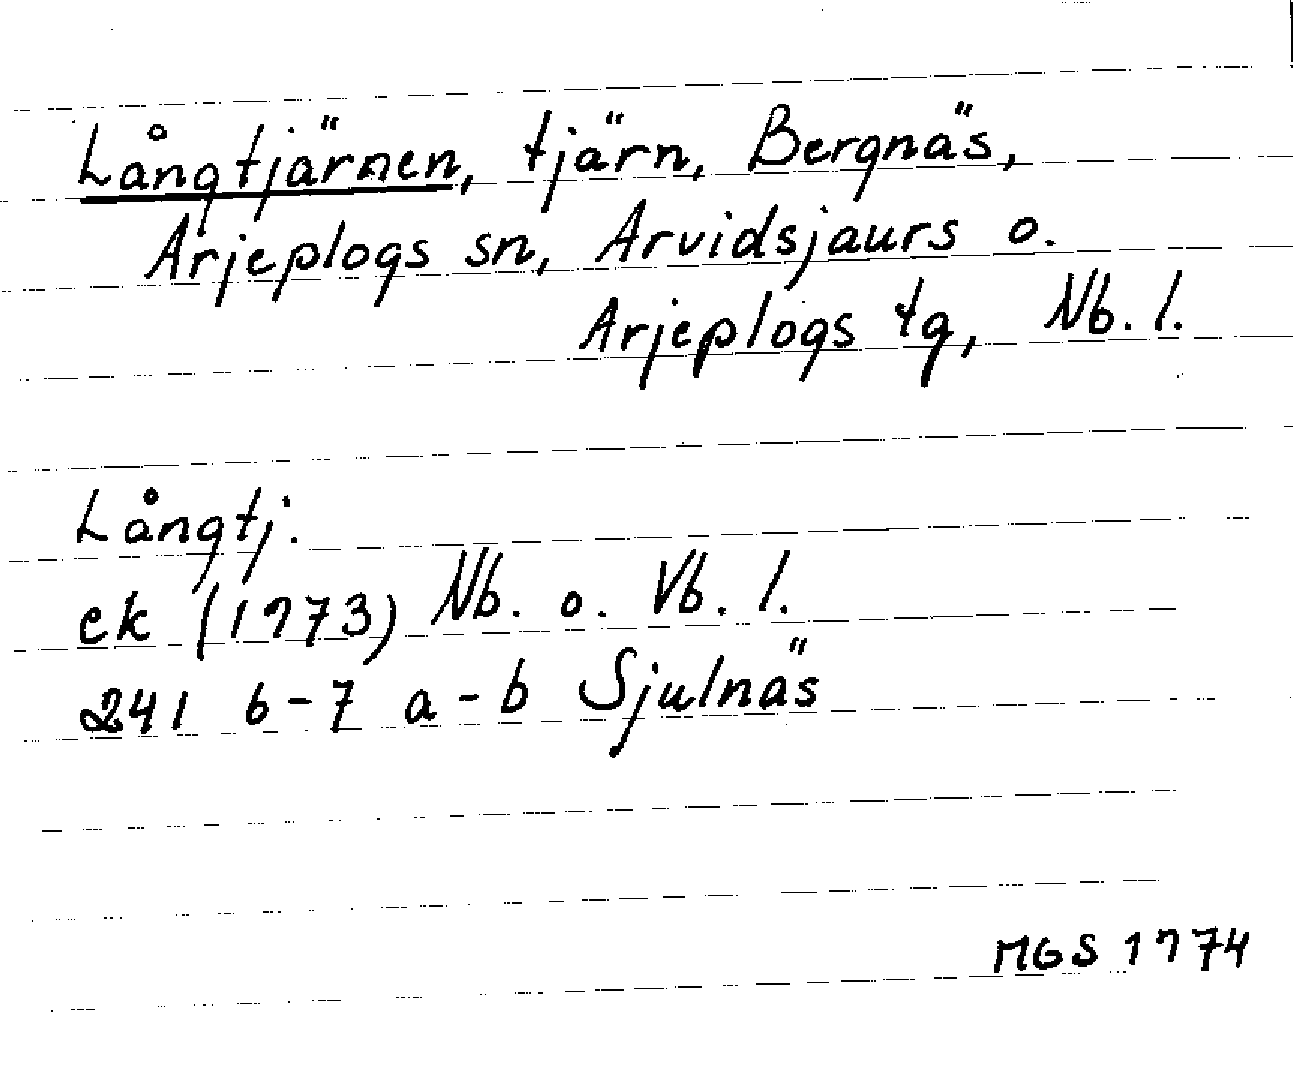 Långtjärnen, tjärn, Bergnäs,
Arjeplogs sn, Arvidsjaurs o.
Arjeplogs tg, Nb. l.
Långtj.
ek (1973) Nb. o. Vb. l.
241 6-7 a-b Sjulnäs
MGS 1974